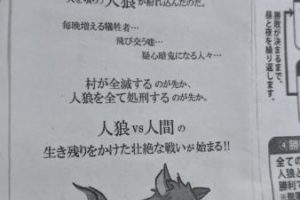 人狼が紛れ込んだのだ。
毎晩増える犠牲者…
飛び交う嘘…
疑心暗鬼になる人々…
村が全滅するのが先か、
人狼を全て処刑するのが先か、
人狼 vs 人間の
生き残りをかけた壮絶な戦いが始まる!!
勝敗が決まるまで、
昼と夜を繰り返します。
④勝
全ての
人狼と
勝利で